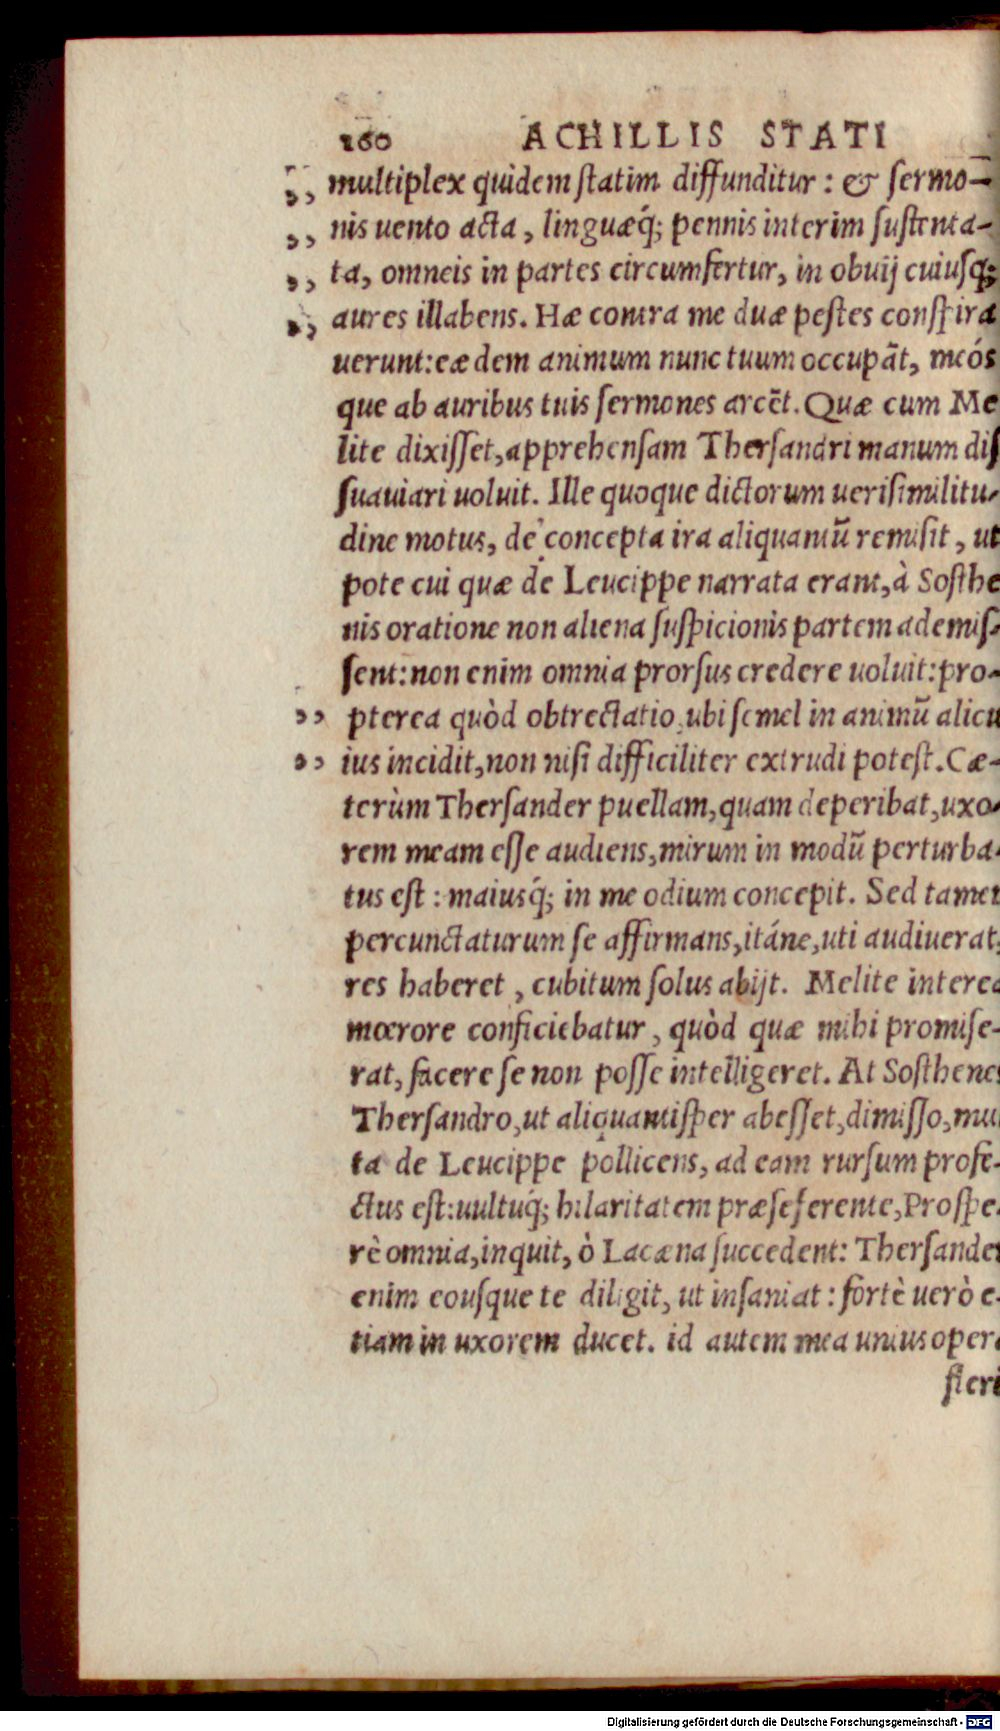 160 ACHILLIS STATI
,, multiplex quidem ſtatim diffunditur: & ſermo-
,, nis uento acta, linguæq́; pennis interim ſuſtenta-
,, ta, omneis in partes circumfertur, in obuij cuiuſq;
,, aures illabens. Hæ contra me duæ peſtes conſpira
uerunt:eædem animum nunc tuum occupāt, meós
que ab auribus tuis ſermones arcēt. Quæ cum Me
lite dixiſſet,apprehenſam Therſandri manum diſ
ſuauiari uoluit. Ille quoque dictorum ueriſimilitu-
dine motus, de concepta ira aliquantū remiſit, ut
pote cui quæ de Leucippe narrata erant,à Soſthe
nis oratione non aliena ſuſpicionis partem ademiſ-
ſent:non enim omnia prorſus credere uoluit:pro-
,, pterea quòd obtrectatio,ubi ſemel in animū alicu
,, ius incidit,non niſi difficiliter extrudi poteſt.Cæ-
terùm Therſander puellam,quam deperibat,uxo-
rem meam eſſe audiens,mirum in modū perturba-
tus eſt: maiusq́; in me odium concepit. Sed tamen
percunctaturum ſe affirmans,itáne,uti audiuerat,
res haberet, cubitum ſolus abijt. Melite interea
mœrore conficiebatur, quòd quæ mihi promiſe-
rat, facere ſe non poſſe intelligeret. At Soſthenes
Therſandro,ut aliquantiſper abeſſet,dimiſſo,mul
ta de Leucippe pollicens, ad eam rurſum profe-
ctus eſt:uultuq́; hilaritatem præſeferente,Proſpe-
rè omnia,inquit, ò Lacæna ſuccedent: Therſander
enim eouſque te diligit, ut inſaniat: fortè uerò e-
tiam in uxorem ducet. id autem mea unius opera
fieri
Digitalisierung gefördert durch die Deutsche Forschungsgemeinschaft - DFG